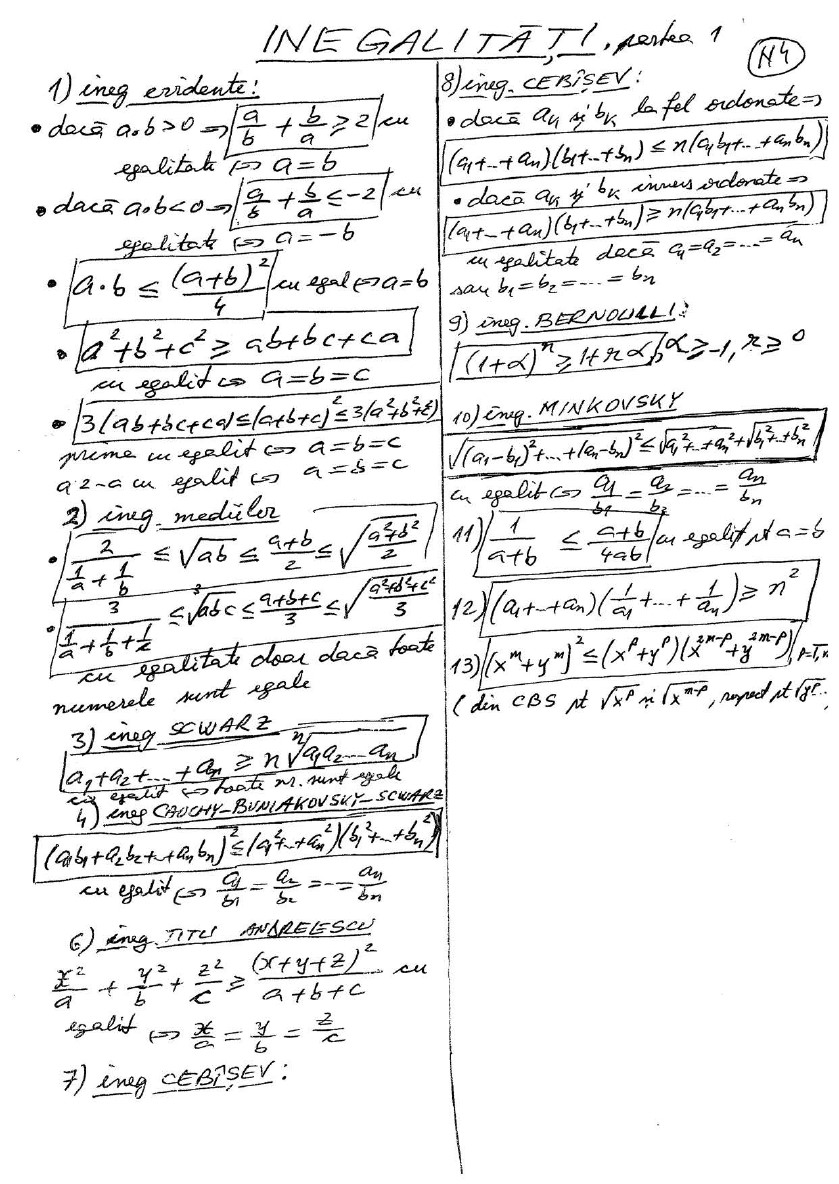 INEGALITĂȚI, partea 1
N4
1) ineg evidente:
• dacă a·b>0 ⇒ a/b + b/a ≥ 2 cu
egalitate ⇔ a=b
• dacă a·b<0 ⇒ a/b + b/a ≤ -2 cu
egalitate ⇔ a=-b
• a·b ≤ (a+b)²/4 cu egal ⇔ a=b
• a²+b²+c² ≥ ab+bc+ca
cu egalit ⇔ a=b=c
• 3(ab+bc+ca) ≤ (a+b+c)² ≤ 3(a²+b²+c²)
prima cu egalit ⇔ a=b=c
a 2-a cu egalit ⇔ a=b=c
2) ineg. mediilor
• 2/(1/a + 1/b) ≤ √ab ≤ (a+b)/2 ≤ √((a²+b²)/2)
• 3/(1/a + 1/b + 1/c) ≤ ³√abc ≤ (a+b+c)/3 ≤ √((a²+b²+c²)/3)
cu egalitate doar dacă toate
numerele sunt egale
3) ineg SCWARZ
a₁+a₂+...+aₙ ≥ n ⁿ√(a₁a₂...aₙ)
cu egalit ⇔ toate nr. sunt egale
4) ineg CAUCHY-BUNIAKOVSKI-SCWARZ
(a₁b₁+a₂b₂+..+aₙbₙ)² ≤ (a₁²+..+aₙ²)(b₁²+..+bₙ²)
cu egalit ⇔ a₁/b₁ = a₂/b₂ = ... = aₙ/bₙ
6) ineg. TITU ANDRELESCU
x²/a + y²/b + z²/c ≥ (x+y+z)²/(a+b+c) cu
egalit ⇔ x/a = y/b = z/c
7) ineg CEBÎȘEV:
8) ineg. CEBÎȘEV:
• dacă aₖ și bₖ la fel ordonate ⇒
(a₁+...+aₙ)(b₁+...+bₙ) ≤ n(a₁b₁+...+aₙbₙ)
• dacă aₖ și bₖ invers ordonate ⇒
(a₁+...+aₙ)(b₁+...+bₙ) ≥ n(a₁b₁+...+aₙbₙ)
cu egalitate dacă a₁=a₂=...=aₙ
sau b₁=b₂=...=bₙ
9) ineg. BERNOULLI:
(1+α)ⁿ ≥ 1+rα, α ≥ -1, r ≥ 0
10) ineg. MINKOVSKY
√((a₁-b₁)²+...+(aₙ-bₙ)²) ≤ √(a₁²+..+aₙ²) + √(b₁²+..+bₙ²)
cu egalit ⇔ a₁/b₁ = a₂/b₂ = ... = aₙ/bₙ
11) 1/(a+b) ≤ (a+b)/4ab cu egalit pt a=b
12) (a₁+..+aₙ)(1/a₁+...+1/aₙ) ≥ n²
13) (xᵐ+yᵐ)² ≤ (xᵖ+yᵖ)(x²ᵐ⁻ᵖ+y²ᵐ⁻ᵖ), p=1,n
(din CBS pt √xᵖ și √xᵐ⁻ᵖ, respect pt √yᵖ..